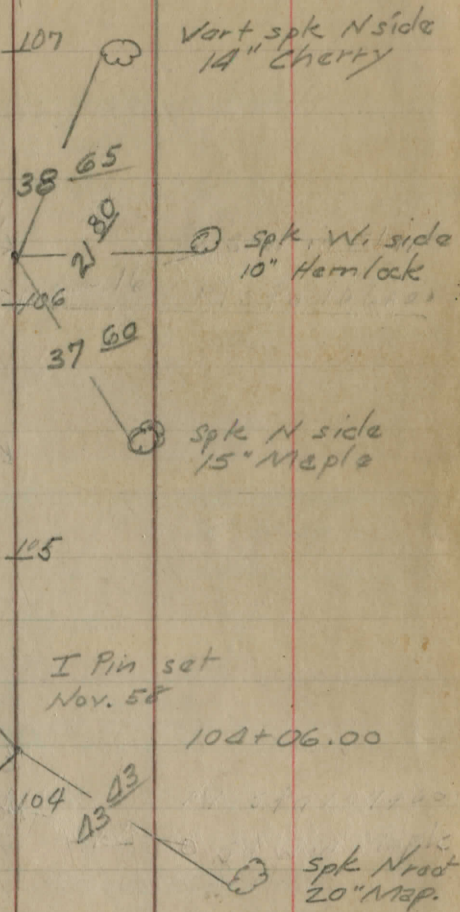 107
Vart spk N side
14" Cherry
38 65
21 80
spk W. side
10" Hemlock
106
37 60
spk N side
15" Maple
105
I Pin set
Nov. 58
104+06.00
104
43 43
spk N root
20" Map.